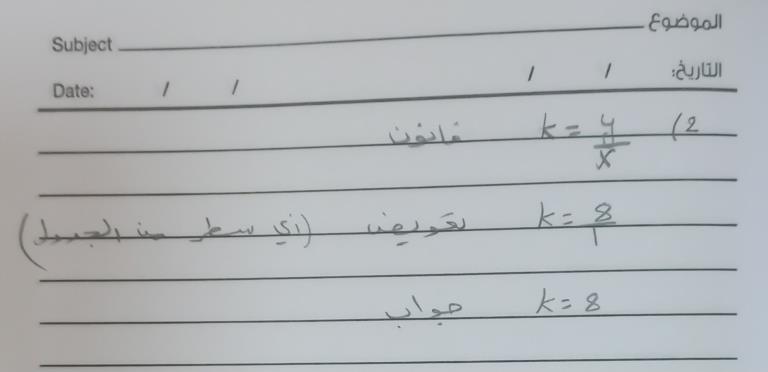 Subject الموضوع
Date: / / / / التاريخ:
2) k = y/x قانون
k = 8/1 تعويض (أي سطر من الجدول)
k = 8 جواب